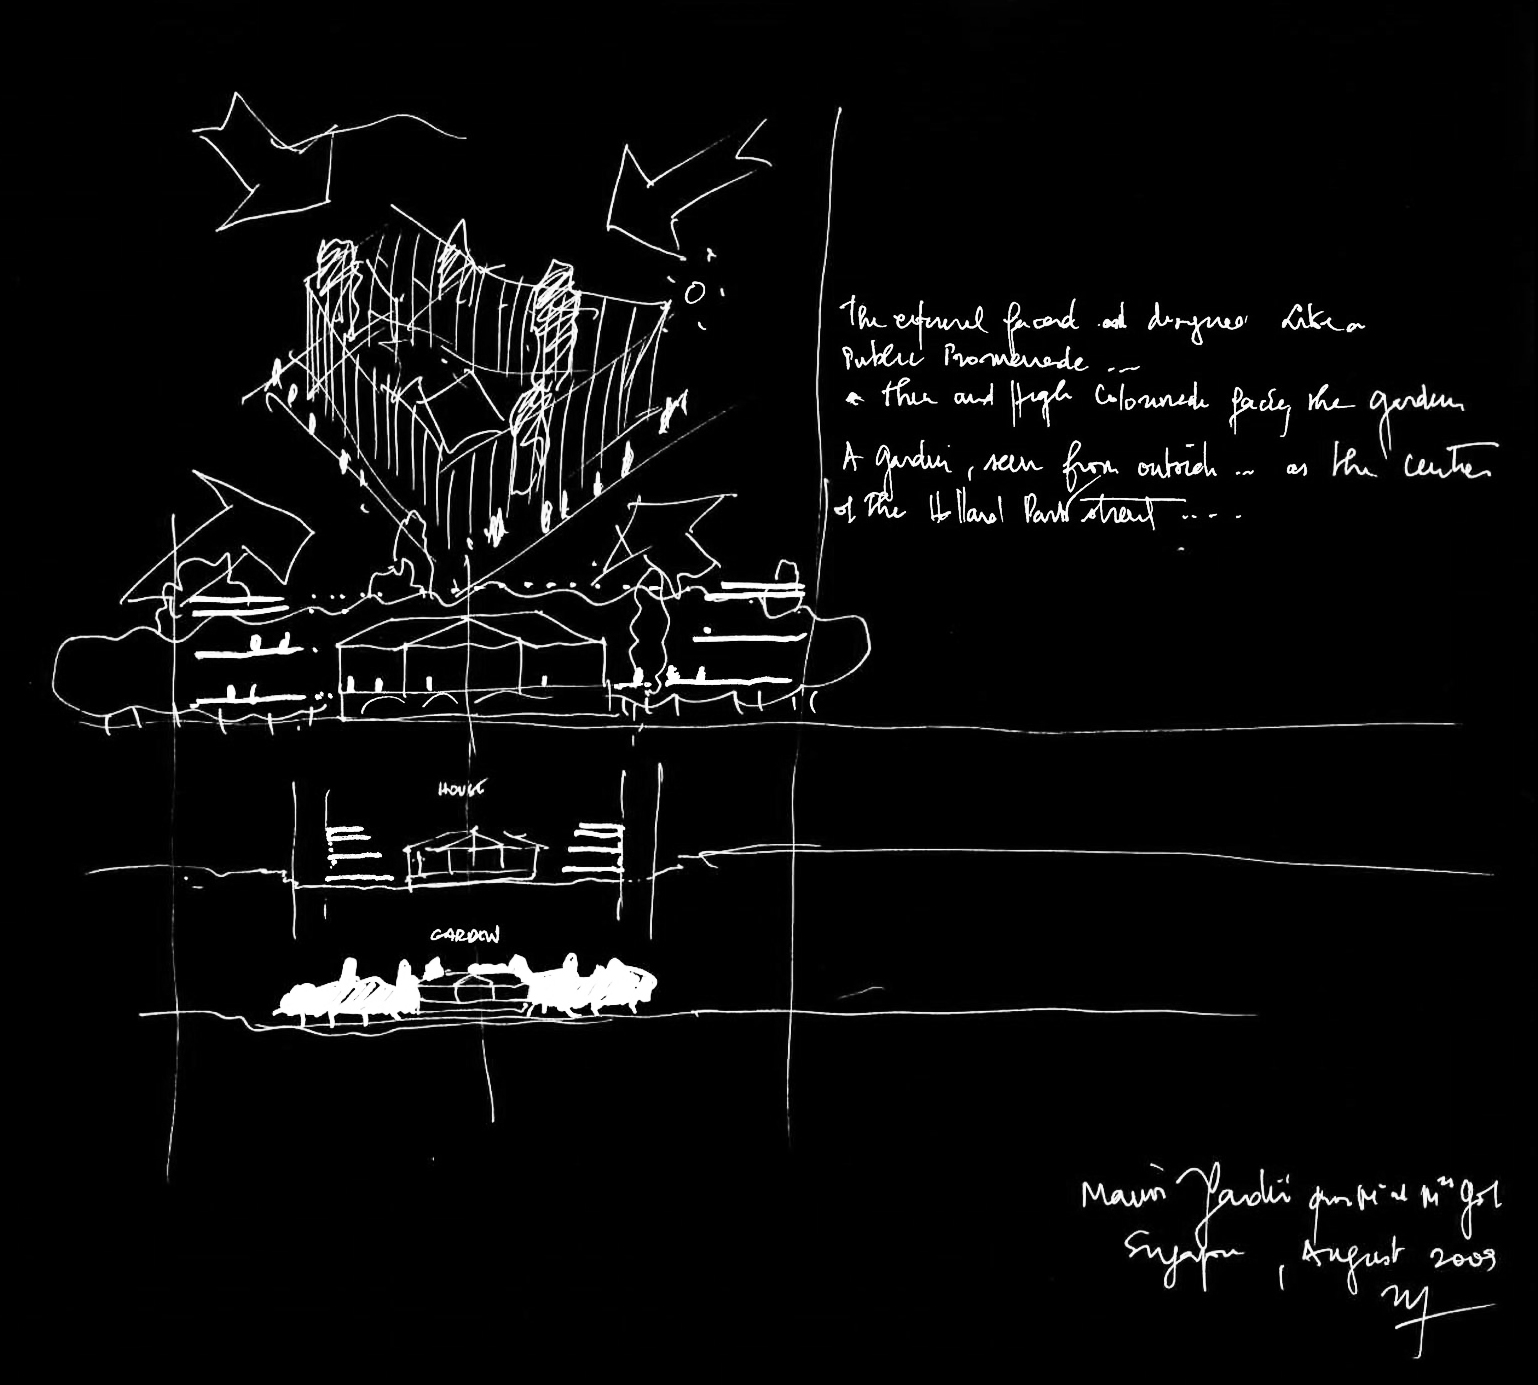 The external facad as designed Like a
Public Promenade ...
a thin and High Colonnade facing the garden
A garden, seen from outside ... as the center
of the Holland Park street ....
HOUSE
GARDEN
for Mr and Mrs Goh
Singapore, August 2009